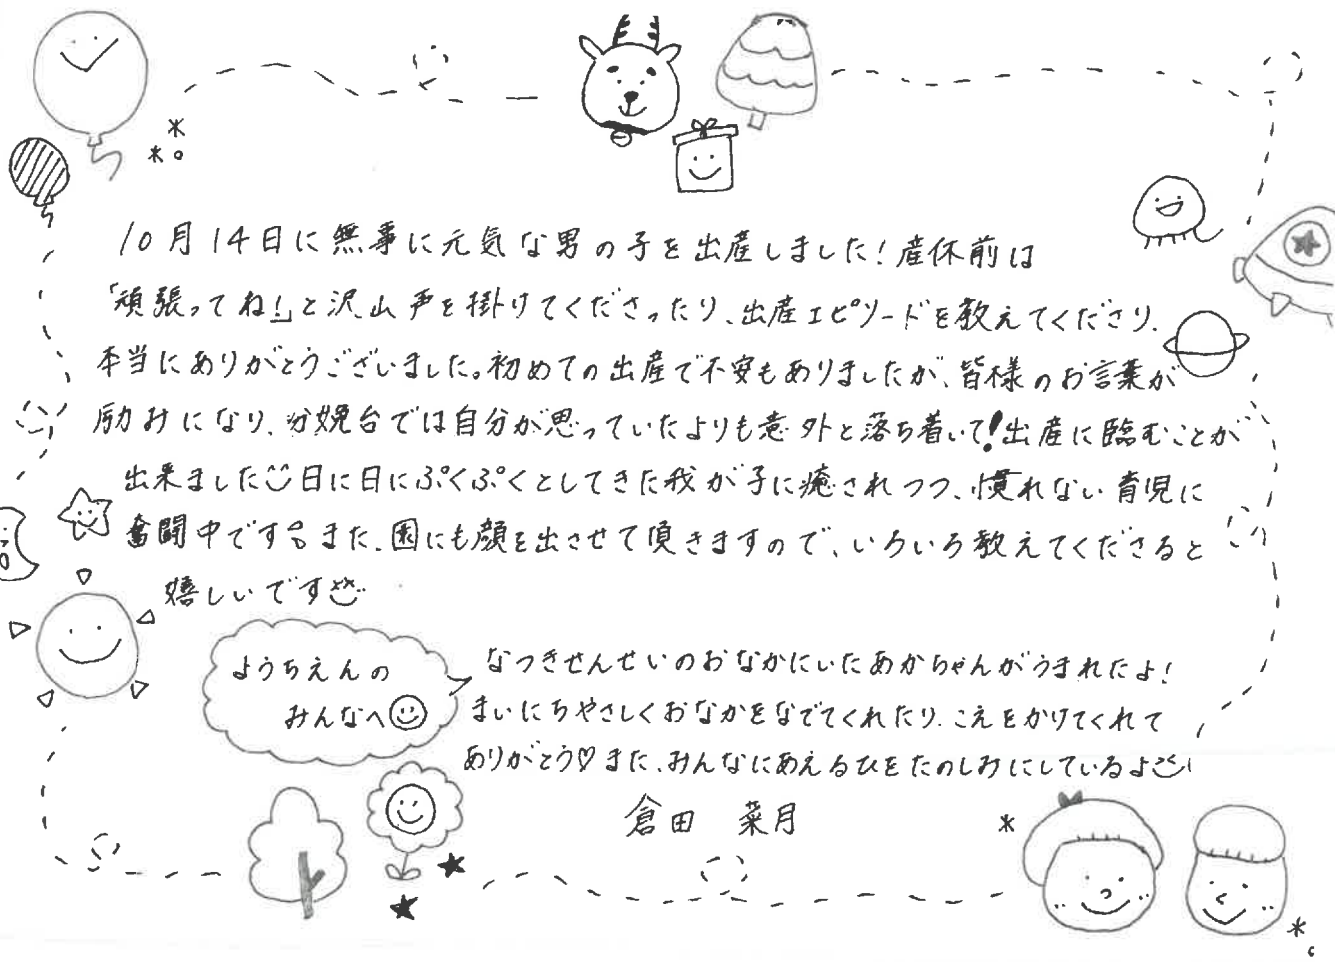 10月14日に無事に元気な男の子を出産しました！産休前は
「頑張ってね！」と沢山声を掛けてくださったり、出産エピソードを教えてくださり、
本当にありがとうございました。初めての出産で不安もありましたが、皆様のお言葉が
励みになり、分娩台では自分が思っていたよりも意外と落ち着いて！出産に臨むことが
出来ました日に日にぷくぷくとしてきた我が子に癒されつつ、慣れない育児に
奮闘中です。また、園にも顔を出させて頂きますので、いろいろ教えてくださると
嬉しいです
ようちえんの
みんなへ
なつきせんせいのおなかにいたあかちゃんがうまれたよ！
まいにちやさしくおなかをなでてくれたり、こえをかけてくれて
ありがとう♡また、みんなにあえるひをたのしみにしているよ
倉田 菜月